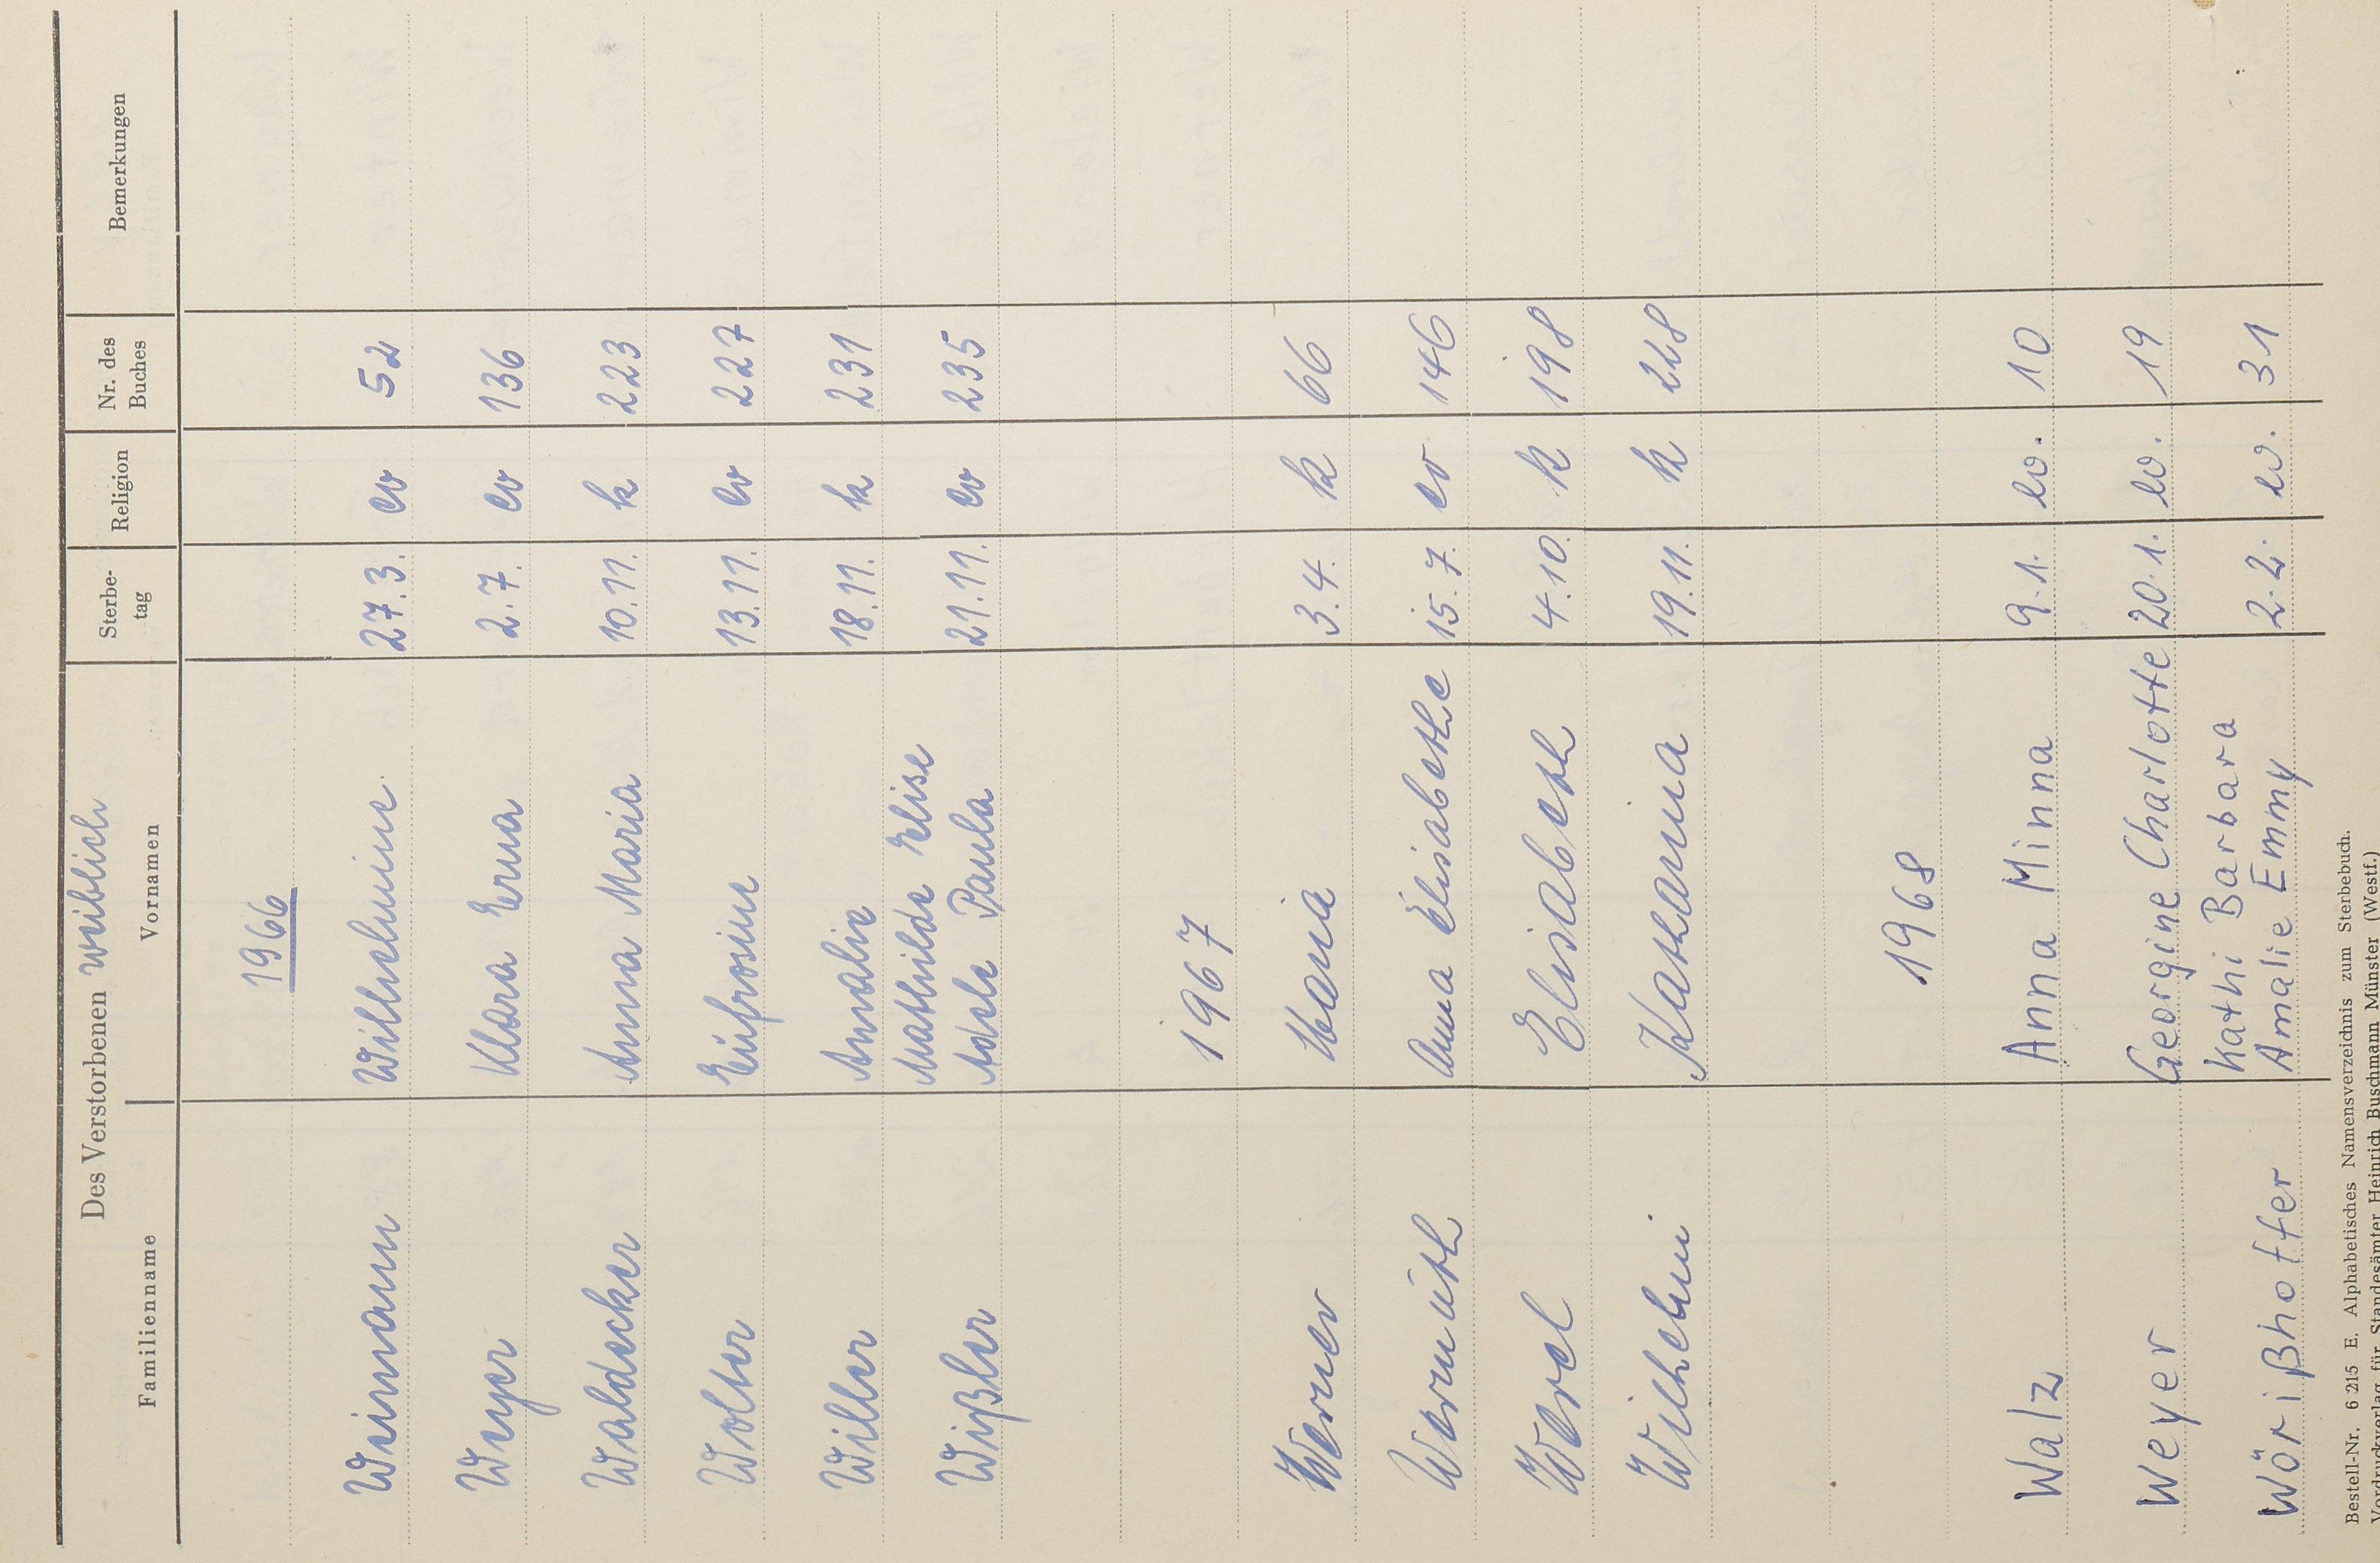 Des Verstorbenen weiblich
Familienname Vornamen Sterbe- tag Religion Nr. des Buches Bemerkungen
1966
Weinmann Wilhelmine 27.3. ev 52
Weyer Klara Erna 2.7. ev 136
Waldecker Anna Maria 10.11. k 223
Wolter Eufrosine 13.11. ev 227
Willer Amalie 18.11. k 231
Mathilde Elise
Wißler Adele Paula 21.11. ev 235
1967
Werner Maria 3.4. k 66
Wermuth Anna Elisabethe 15.7. ev 146
Werel Elisabeth 4.10. k 198
Wilhelmi Katharina 19.11. k 228
1968
Walz Anna Minna 9.1. ev. 10
Weyer Georgine Charlotte 20.1. ev. 19
Kathi Barbara
Wörißhoffer Amalie Emmy 2.2. ev. 31
Bestell-Nr. 6 215 E. Alphabetisches Namensverzeichnis zum Sterbebuch.
Vordruckverlag für Standesämter Heinrich Buschmann Münster (Westf.)